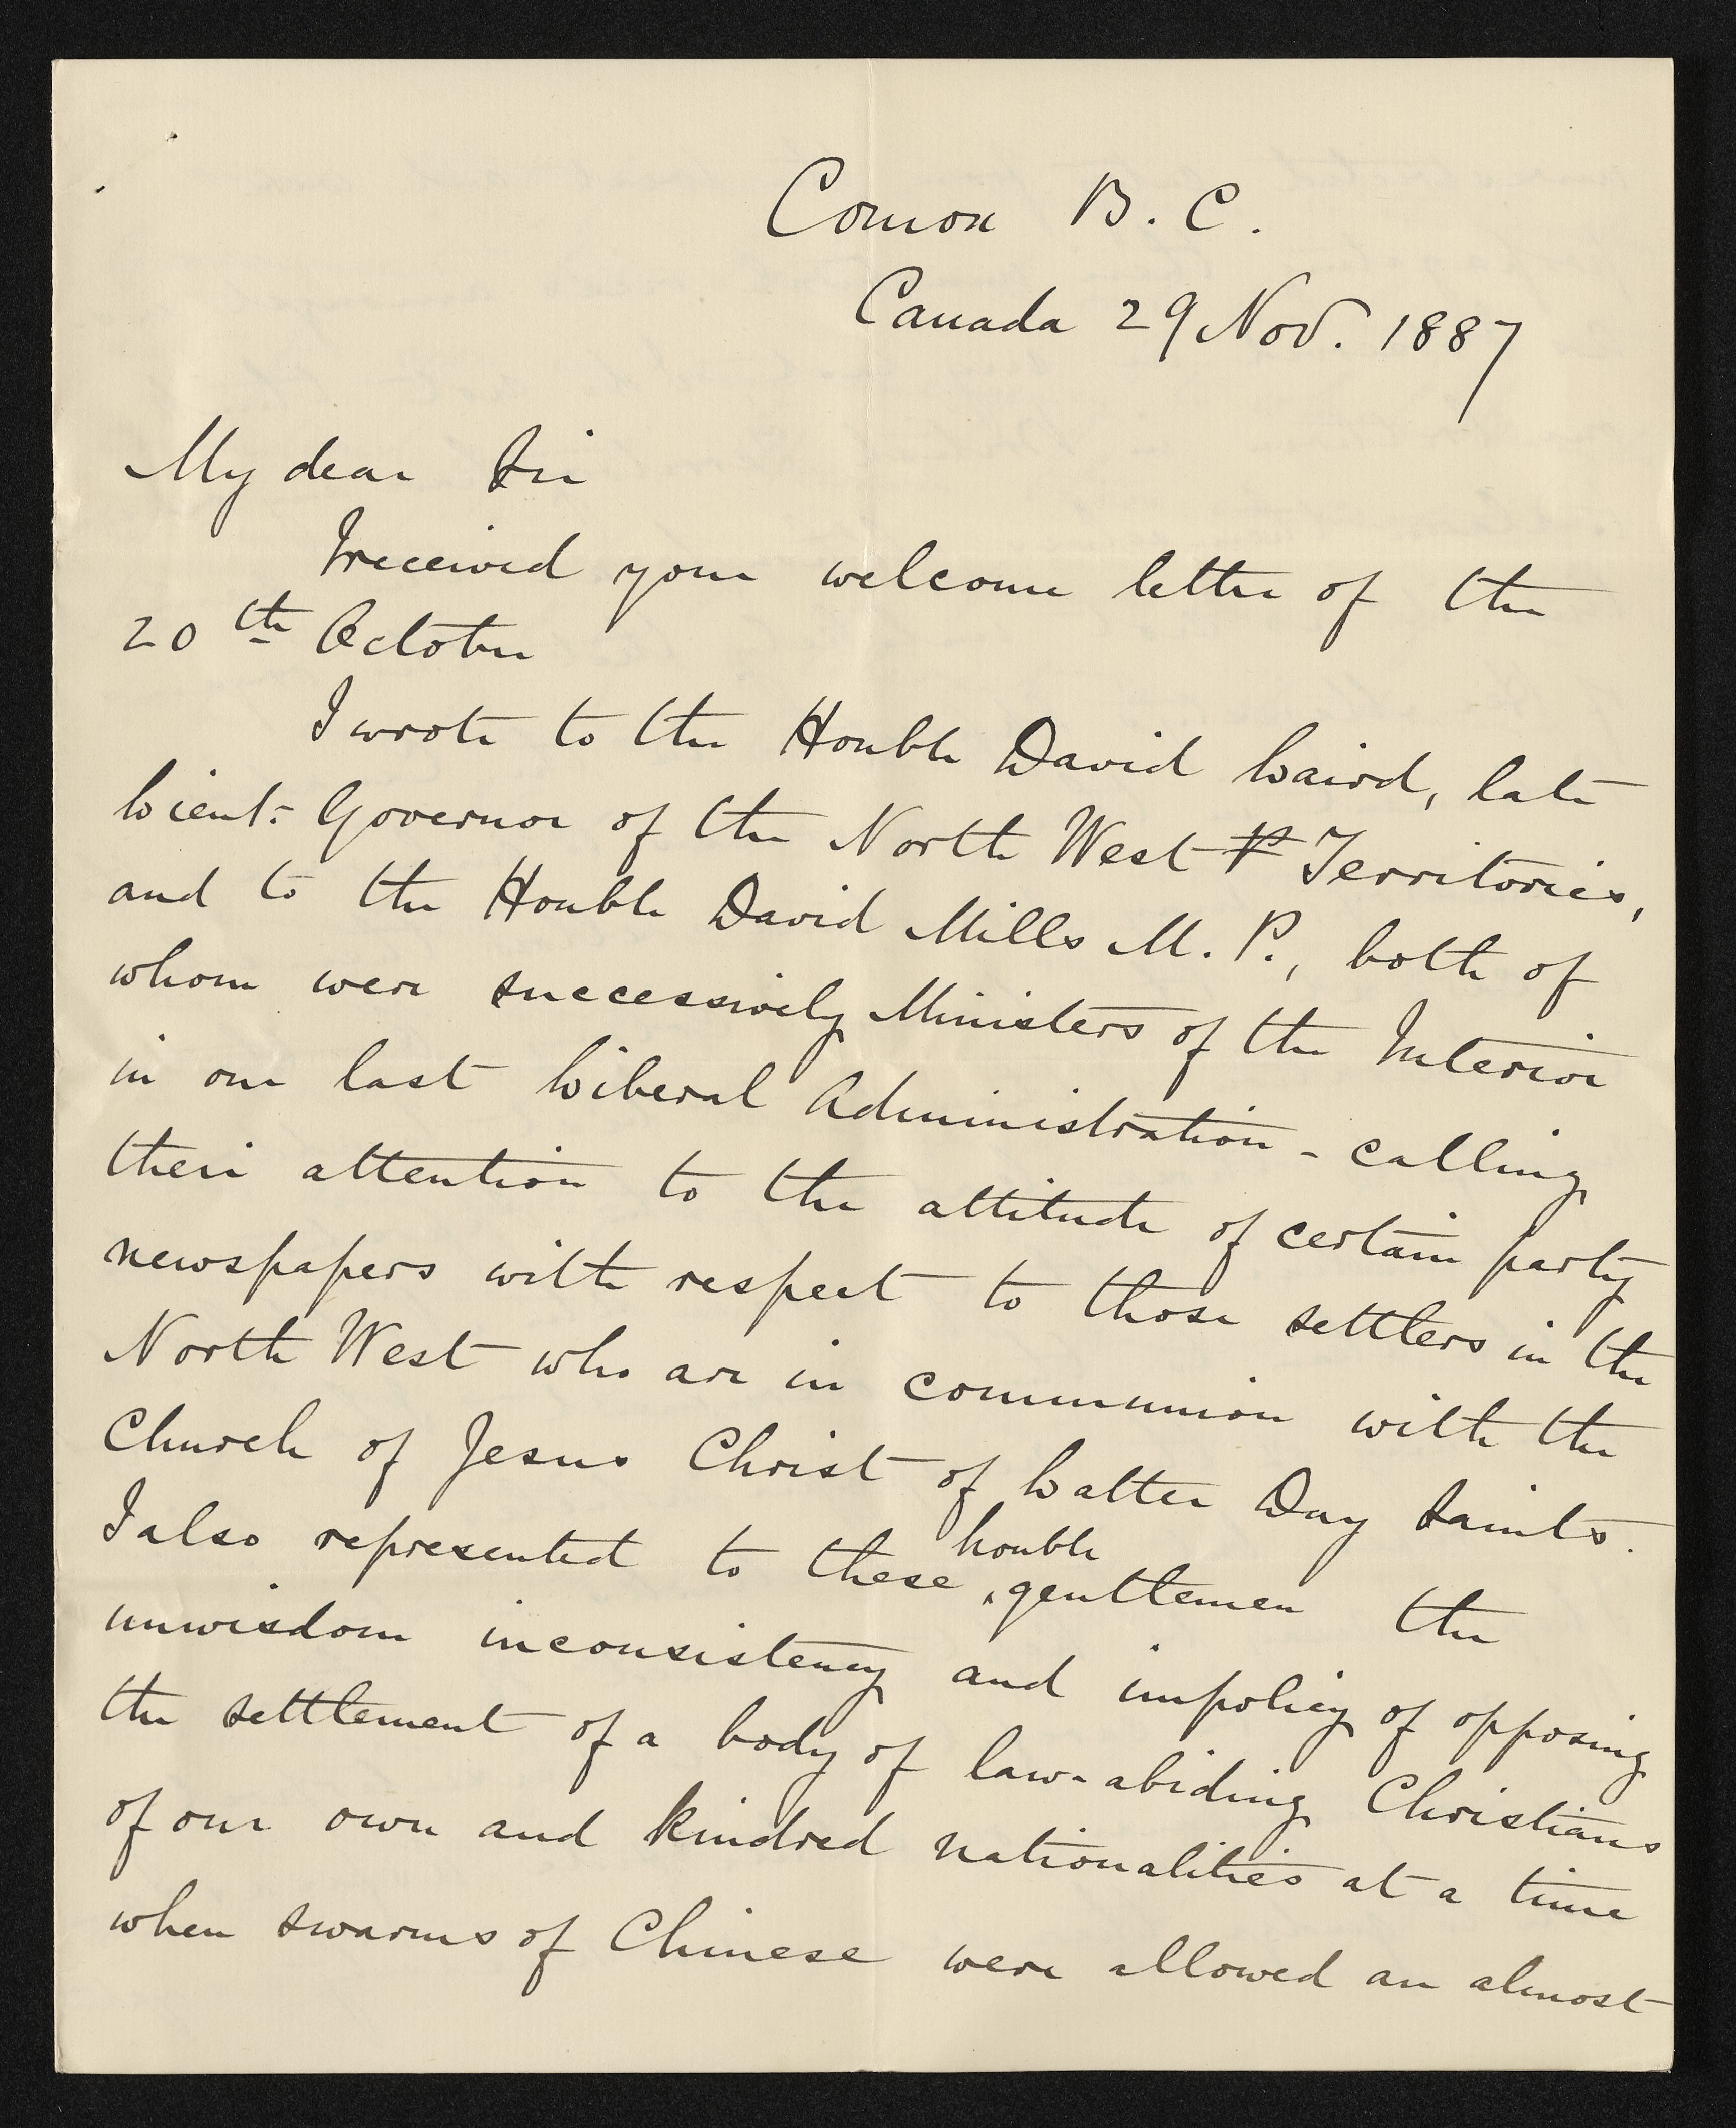 Comox B. C.
Canada 29 Nov. 1887
My dear Sir
I received your welcome letter of the
20th October
I wrote to the Honble David Laird, late
Lieut: Governor of the North West P Territories,
and to the Honble David Mills M. P., both of
whom were successively Ministers of the Interior
in our last Liberal Administration - calling
their attention to the attitude of certain party
newspapers with respect to those settlers in the
North West who are in communion with the
Church of Jesus Christ of Latter Day Saints.
I also represented to these honble gentlemen the
unwisdom inconsistency and impolicy of opposing
the settlement of a body of law-abiding Christians
of our own and kindred nationalities at a time
when swarms of Chinese were allowed an almost